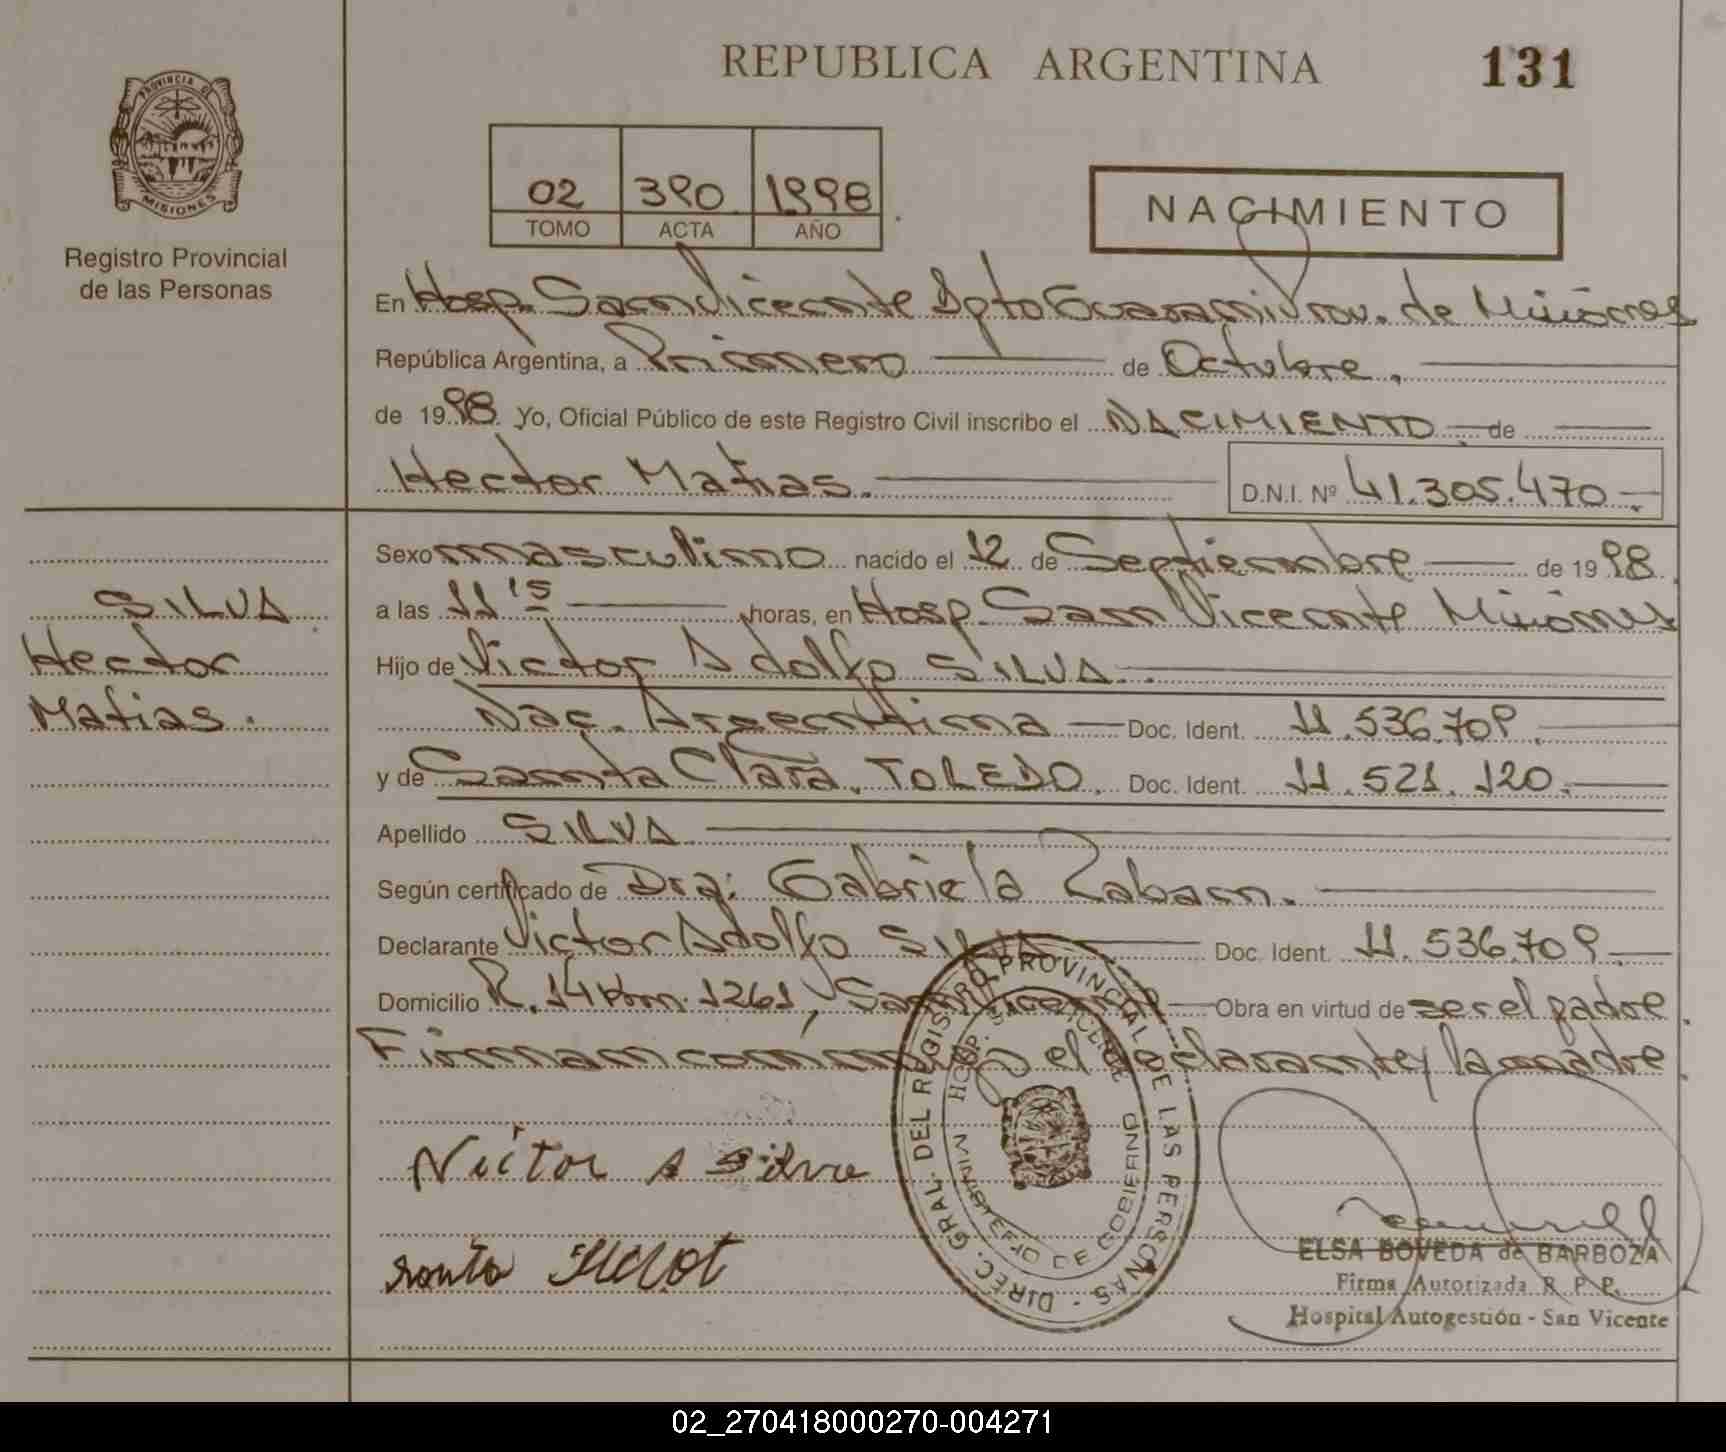 REPUBLICA ARGENTINA
131
PROVINCIA DE MISIONES
Registro Provincial
de las Personas
02 390 1998
TOMO ACTA AÑO
NACIMIENTO
En Hosp. San Vicente Dpto Guarani Prov. de Misiones
República Argentina, a Primero de Octubre.
de 1998 Yo, Oficial Público de este Registro Civil inscribo el NACIMIENTO de
Hector Matias. D.N.I. Nº 41.305.470.-
SILVA
Hector
Matias.
Sexo masculino nacido el 12 de Septiembre de 1998
a las 11 15 horas, en Hosp. San Vicente Misiones
Hijo de Victor Adolfo SILVA.
Nac. Argentina Doc. Ident. 11.536.709.
y de Santa Clara TOLEDO. Doc. Ident. 11.521.120.
Apellido SILVA
Según certificado de Dra: Gabriela Raban.
Declarante Victor Adolfo SILVA Doc. Ident. 11.536.709.
Domicilio R. 14 Km. 1261, San Vicente Obra en virtud de ser el padre
Firman conmigo el declarante y la madre.
Victor A Silva
Santa
DIREC. GRAL. DEL REGISTRO PROVINCIAL DE LAS PERSONAS
HOSP. SAN VICENTE
MINISTERIO DE GOBIERNO
ELSA BOVEDA de BARBOZA
Firma Autorizada R. P. P.
Hospital Autogestión - San Vicente
02_270418000270-004271